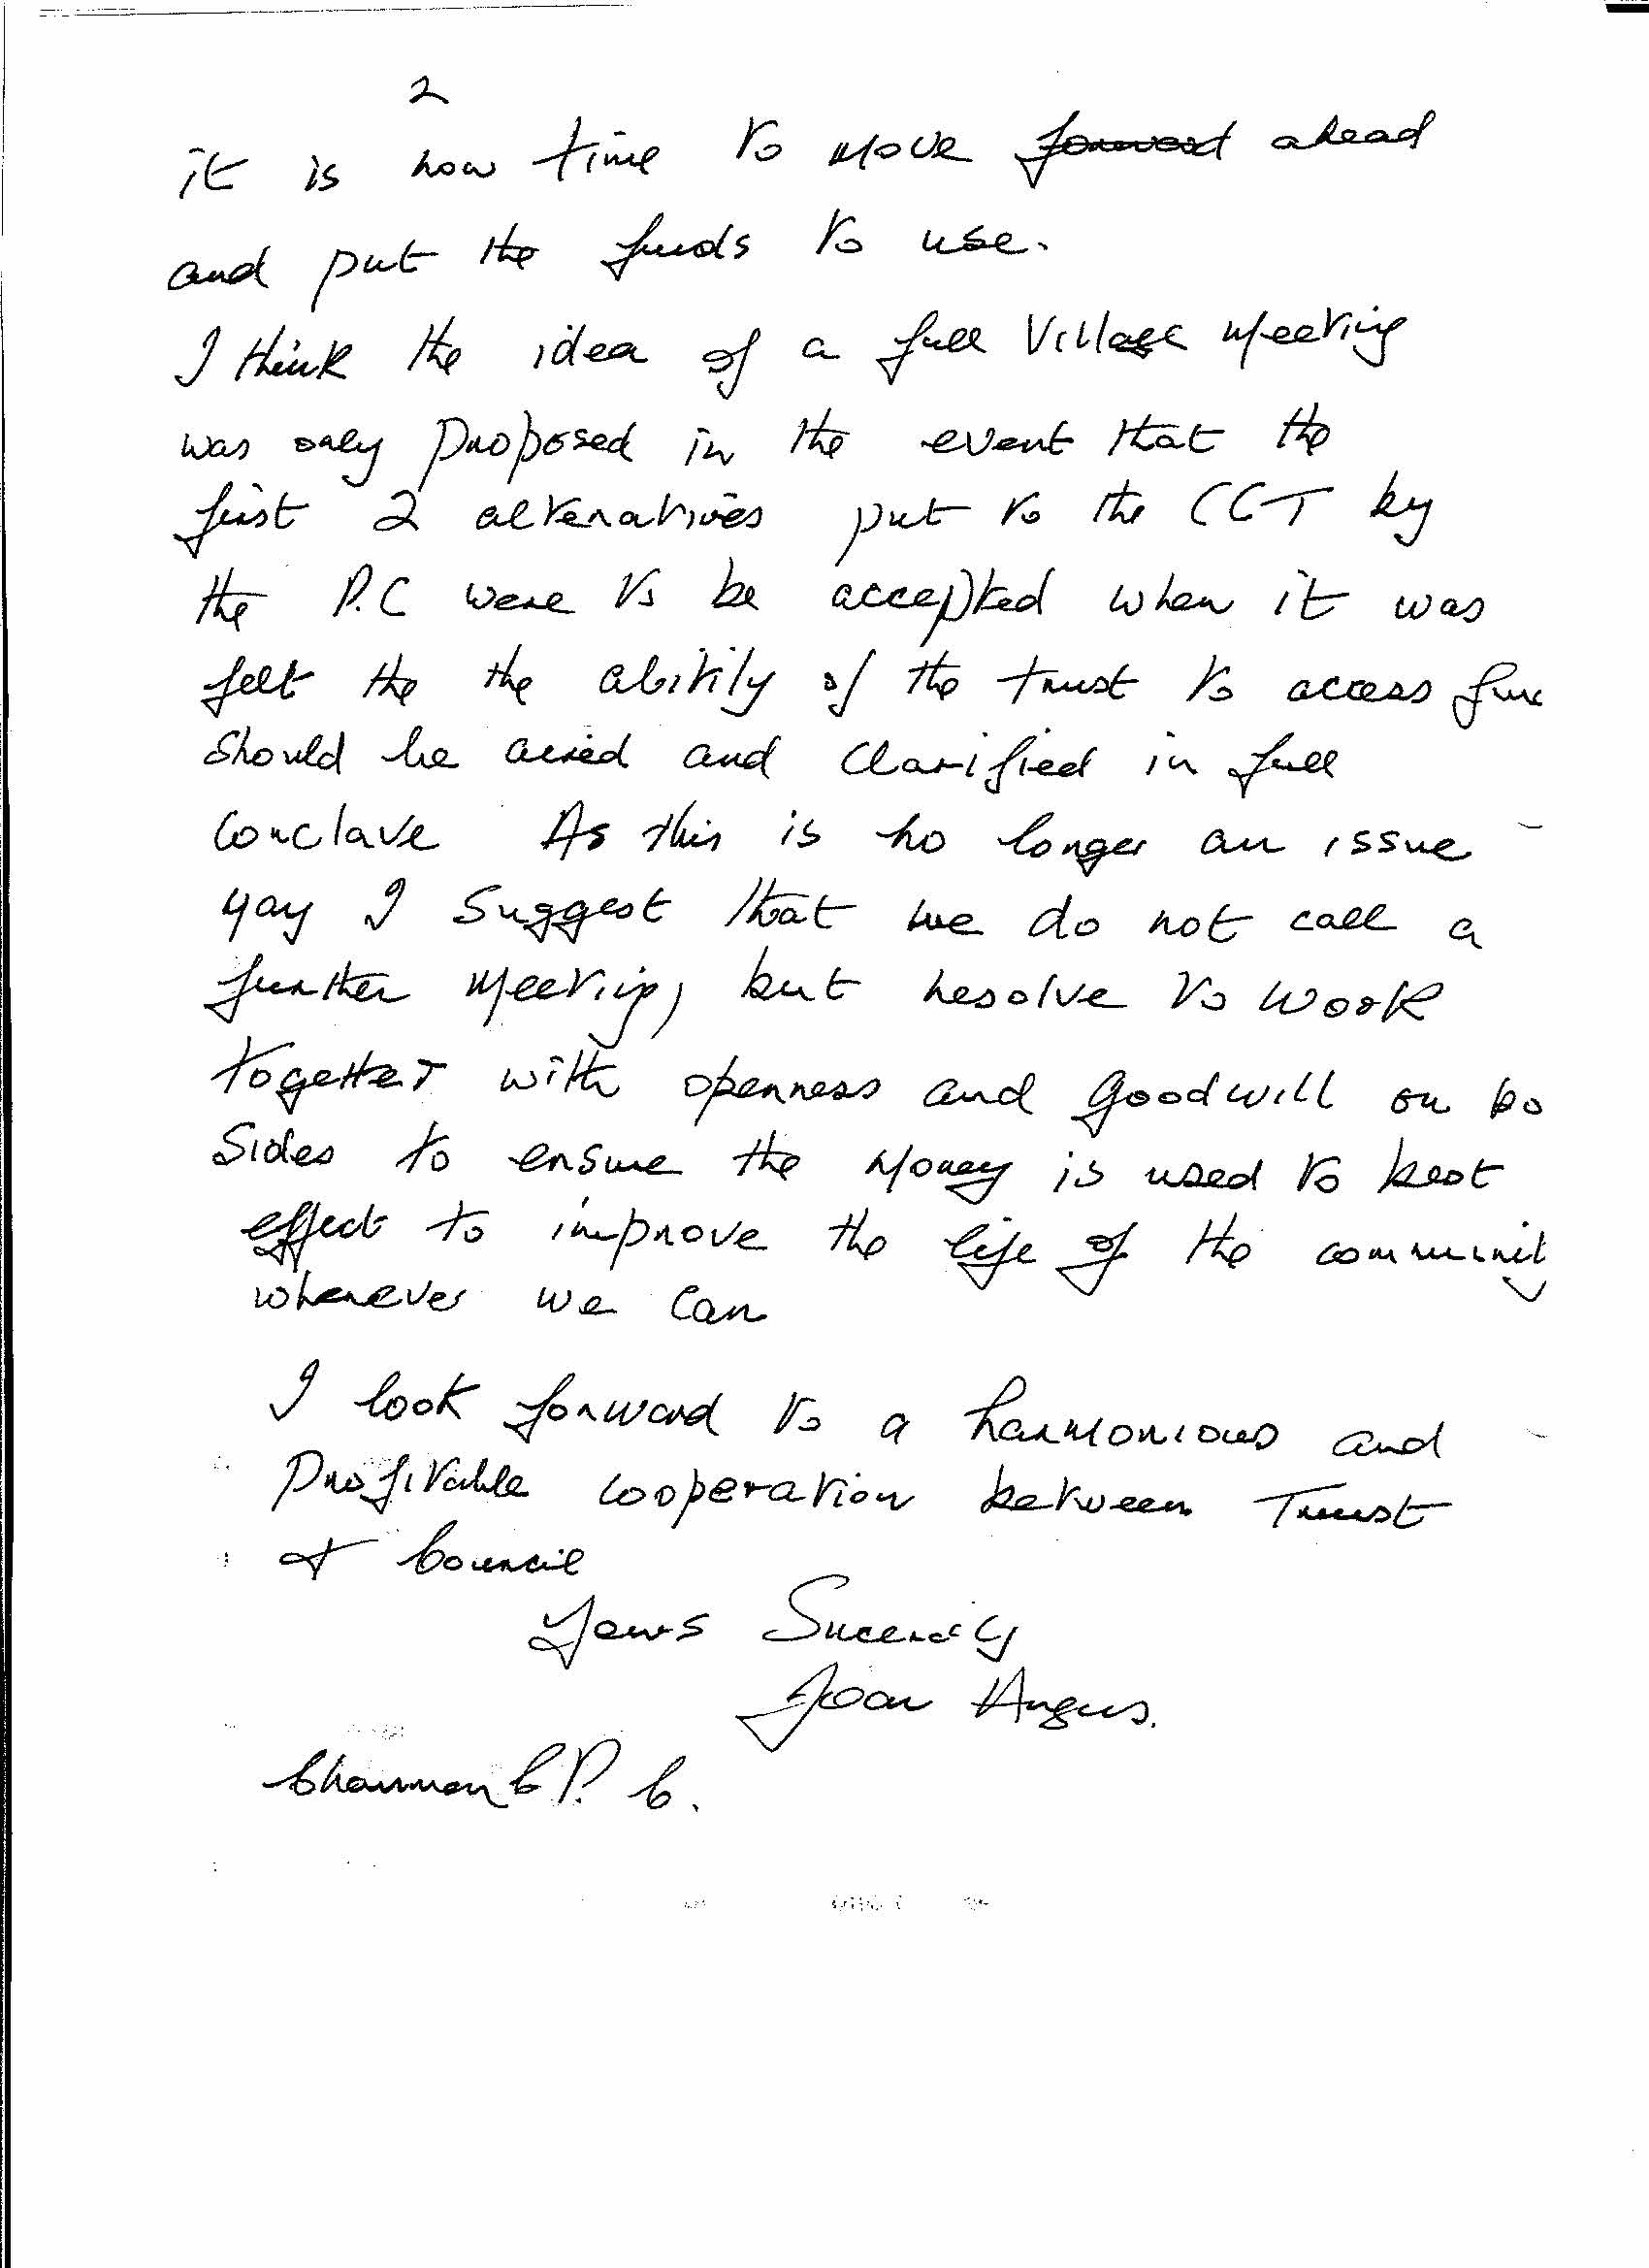 2
it is now time to move forward ahead
and put the funds to use.
I think the idea of a full Village meeting
was only proposed in the event that the
first 2 alternatives put to the CCT by
the P.C were to be accepted when it was
felt the the ability of the trust to access fun
should be aired and clarified in full
conclave As this is no longer an issue
may I suggest that we do not call a
further meeting, but resolve to work
together with openness and goodwill on bo
sides to ensure the money is used to best
effect to improve the life of the community
whenever we can
I look forward to a harmonious and
profitable cooperation between Trust
& Council
Yours Sincerely
Joan Angus.
Chairman C P. C.